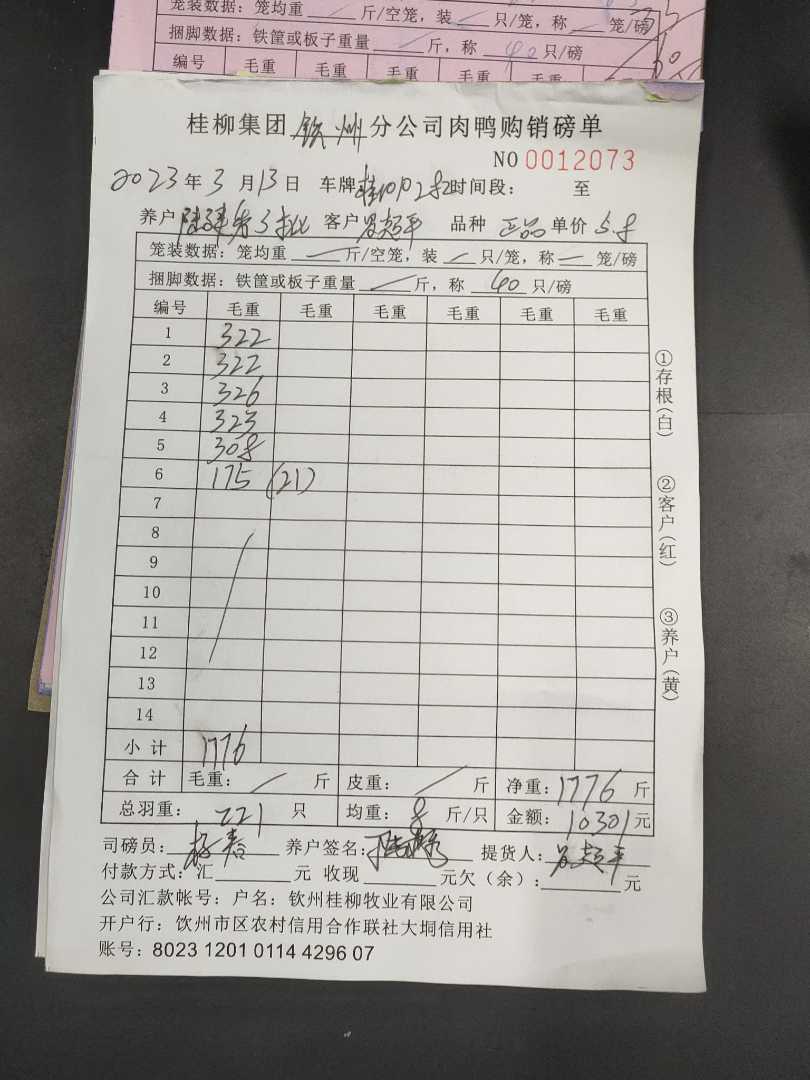 笼装数据：笼均重 斤/空笼，装 只/笼，称 笼/磅
捆脚数据：铁筐或板子重量 斤，称 40 只/磅
编号 毛重 毛重 毛重 毛重 毛重
桂柳集团 钦州 分公司肉鸭购销磅单
NO 0012073
2023年3月13日 车牌 时间段： 至
养户 客户 吕超平 品种 正品 单价 5.8
笼装数据：笼均重 斤/空笼，装 只/笼，称 笼/磅
捆脚数据：铁筐或板子重量 斤，称 40 只/磅
编号 毛重 毛重 毛重 毛重 毛重 毛重
1 322
2 322
3 326
4 323
5 308
6 175 (21)
7
8
9
10
11
12
13
14
小计 1776
合计 毛重： 斤 皮重： 斤 净重：1776 斤
总羽重： 221 只 均重： 8 斤/只 金额：10301元
司磅员： 杨春 养户签名： 提货人：吕超平
付款方式：汇 元 收现 元欠（余）： 元
公司汇款帐号：户名：钦州桂柳牧业有限公司
开户行：饮州市区农村信用合作联社大垌信用社
账号：8023 1201 0114 4296 07
①存根（白）
②客户（红）
③养户（黄）